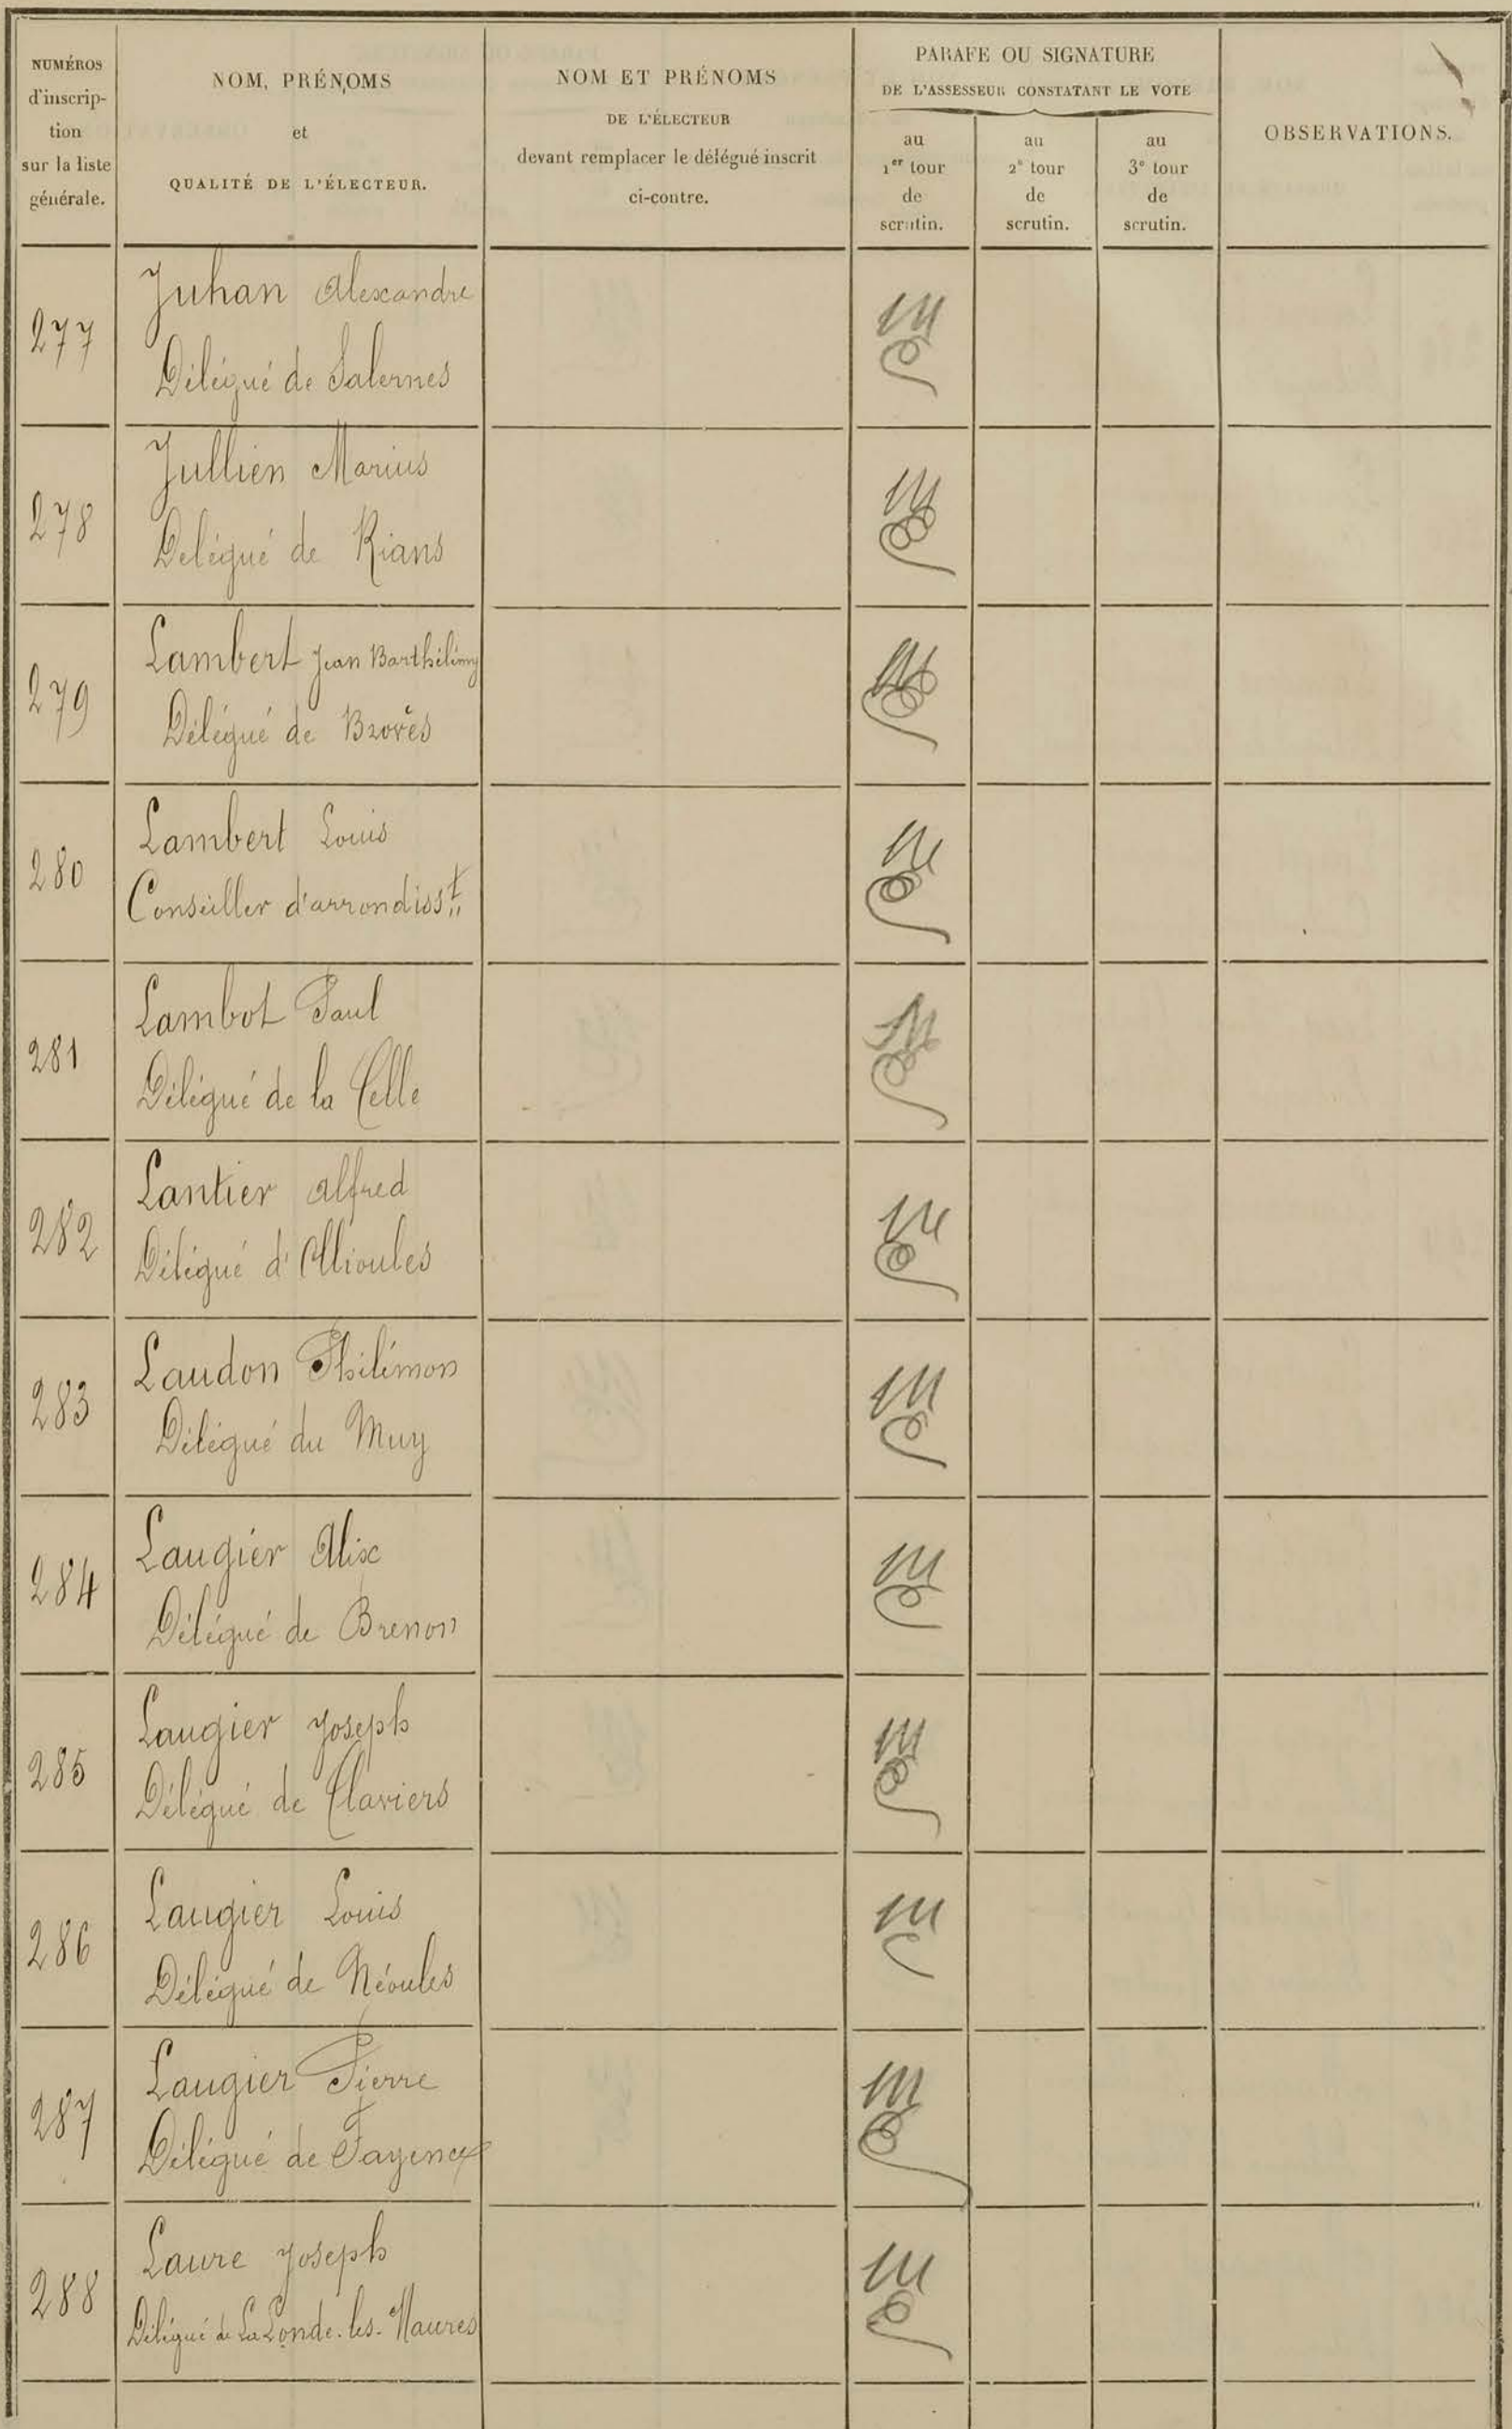 NUMÉROS
d'inscrip-
tion
sur la liste
générale.
NOM, PRÉNOMS
et
QUALITÉ DE L'ÉLECTEUR.
NOM ET PRÉNOMS
DE L'ÉLECTEUR
devant remplacer le délégué inscrit
ci-contre.
PARAFE OU SIGNATURE
DE L'ASSESSEUR CONSTATANT LE VOTE
au
1er tour
de
scrutin.
au
2e tour
de
scrutin.
au
3e tour
de
scrutin.
OBSERVATIONS.
277
Juhan Alexandre
Délégué de Salernes
278
Jullien Marius
Delégué de Rians
279
Lambert Jean Barthélémy
Délégué de Brovès
280
Lambert Louis
Conseiller d'arrondisst
281
Lambot Paul
Délégué de la Celle
282
Lantier Alfred
Délégué d'Ollioules
283
Laudon Philémon
Délégué du Muy
284
Laugier Alix
Délégué de Brenon
285
Laugier Joseph
Délégué de Claviers
286
Laugier Louis
Délégué de Néoules
287
Laugier Pierre
Délégué de Fayence
288
Laure Joseph
Délégué de La Londe-les-Maures